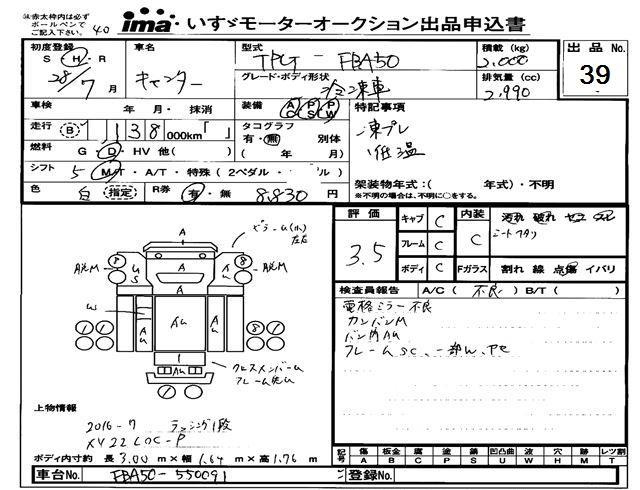 ※赤太枠内は必ず
ボールペンで
ご記入下さい。
40
ima いすゞモーターオークション出品申込書
初度登録 車名 型式 積載(kg) 出品No.
S・H・R キャンター TPG-FBA50 2,000 39
28/7月 グレード・ボディ形状 冷凍車 排気量(cc) 2,990
車検 年 月・抹消 装備 AC PS PW 特記事項
走行 B 138 000km「 」 タコグラフ 有・無 別体 東プレ
燃料 G・D・HV 他( ) ( 年 月) 低温
シフト 5 M/T・A/T・特殊(2ペダル・ ル) 架装物年式:( 年式)・不明
※不明の場合は、不明に○をする。
色 白 指定 R券 有・無 8,830円
評価 3.5 キャブ C 内装 C 汚れ 破れ セコ スレ
フレーム C シートヘタリ
ボディ C Fガラス 割れ 線 点傷 イバリ
検査員報告 A/C(不良) B/T( )
電格ミラー不良
カンバンM
バン内AU
フレームSC、一部W、Pセ
A
8 8
A脱M A脱M
A
A
AU
AU
AU
クロスメンバーM
8 1
上物情報
2016-7 ラッシング1段
XV22LOC-P
ボディ内寸約 長3.00m×幅1.64m×高1.76m
記号 傷 板金 腐 塗 錆 凹凸曲 波 穴 跡 レツ割
A B C P S U W H M T
車台No. FBA50-550091 登録No.